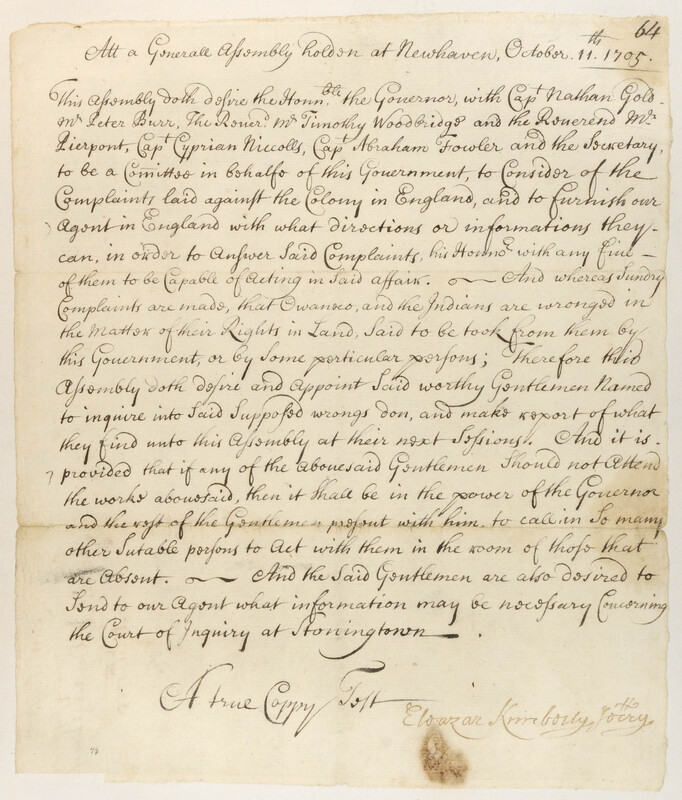 64
Att a Generall Assembly holden at Newhaven, October. 11.th 1705.
This Assembly doth desire the Honn.ble the Governor, with Capt Nathan Gold-
Mr Peter Burr, The Reverd Mr Timothy Woodbridge and the Reverend Mr
Pierpont, Capt Cyprian Niccolls, Capt Abraham Fowler and the Secretary,
to be a Comittee in behalfe of this Government, to Consider of the
Complaints laid against the Colony in England, and to furnish our
Agent in England with what directions or informations they-
can, in order to Answer Said Complaints, his Honnr with any five —
of them to be Capable of Acting in Said affair. — And whereas Sundry
Complaints are made, that Owaneco, and the Indians are wronged in
the Matter of their Rights in Land, Said to be took from them by
this Government, or by Some perticular persons; Therefore this
Assembly doth desire and Appoint Said worthy Gentlemen Named
to inquire into Said Supposed wrongs don, and make report of what
they find unto this Assembly at their next Sessions. And it is.
provided that if any of the abovesaid Gentlemen Should not Attend
the worke abovesaid, then it Shall be in the power of the Governor
and the rest of the Gentlemen present with him. to call in So many
other Sutable persons to Act with them in the room of those that
are Absent. — And the Said Gentlemen are also desired to
Send to our Agent what information may be necessary Concerning
the Court of Inquiry at Stoningtown — .
A true Coppy Test
Eleazar Kimberly
78